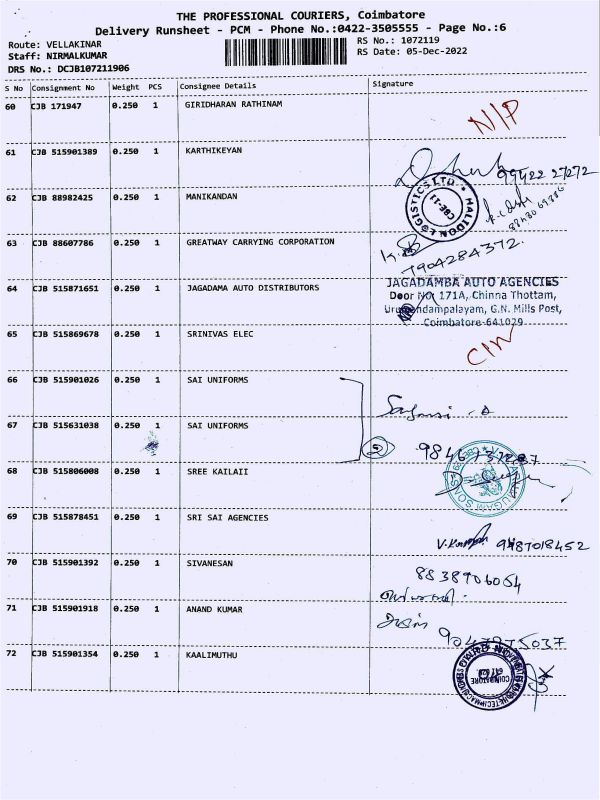 THE PROFESSIONAL COURIERS, Coimbatore
Delivery Runsheet - PCM - Phone No.:0422-3505555 - Page No.:6
Route: VELLAKINAR RS No.: 1072119
Staff: NIRMALKUMAR RS Date: 05-Dec-2022
DRS No.: DCJB107211906
S No Consignment No Weight PCS Consignee Details Signature
60 CJB 171947 0.250 1 GIRIDHARAN RATHINAM
N/P
61 CJB 515901389 0.250 1 KARTHIKEYAN
99422 27272
62 CJB 88982425 0.250 1 MANIKANDAN
HALIDON LOGISTICS LTD
CBE-11
63 CJB 88607786 0.250 1 GREATWAY CARRYING CORPORATION
7904284372.
64 CJB 515871651 0.250 1 JAGADAMA AUTO DISTRIBUTORS
JAGADAMBA AUTO AGENCIES
Door No. 171A, Chinna Thottam,
G.N. Mills Post,
Coimbatore-641029
65 CJB 515869678 0.250 1 SRINIVAS ELEC
66 CJB 515901026 0.250 1 SAI UNIFORMS
67 CJB 515631038 0.250 1 SAI UNIFORMS
2
68 CJB 515806008 0.250 1 SREE KAILAII
69 CJB 515878451 0.250 1 SRI SAI AGENCIES
9487018452
70 CJB 515901392 0.250 1 SIVANESAN
8838906064
71 CJB 515901918 0.250 1 ANAND KUMAR
72 CJB 515901354 0.250 1 KAALIMUTHU
COIMBATORE